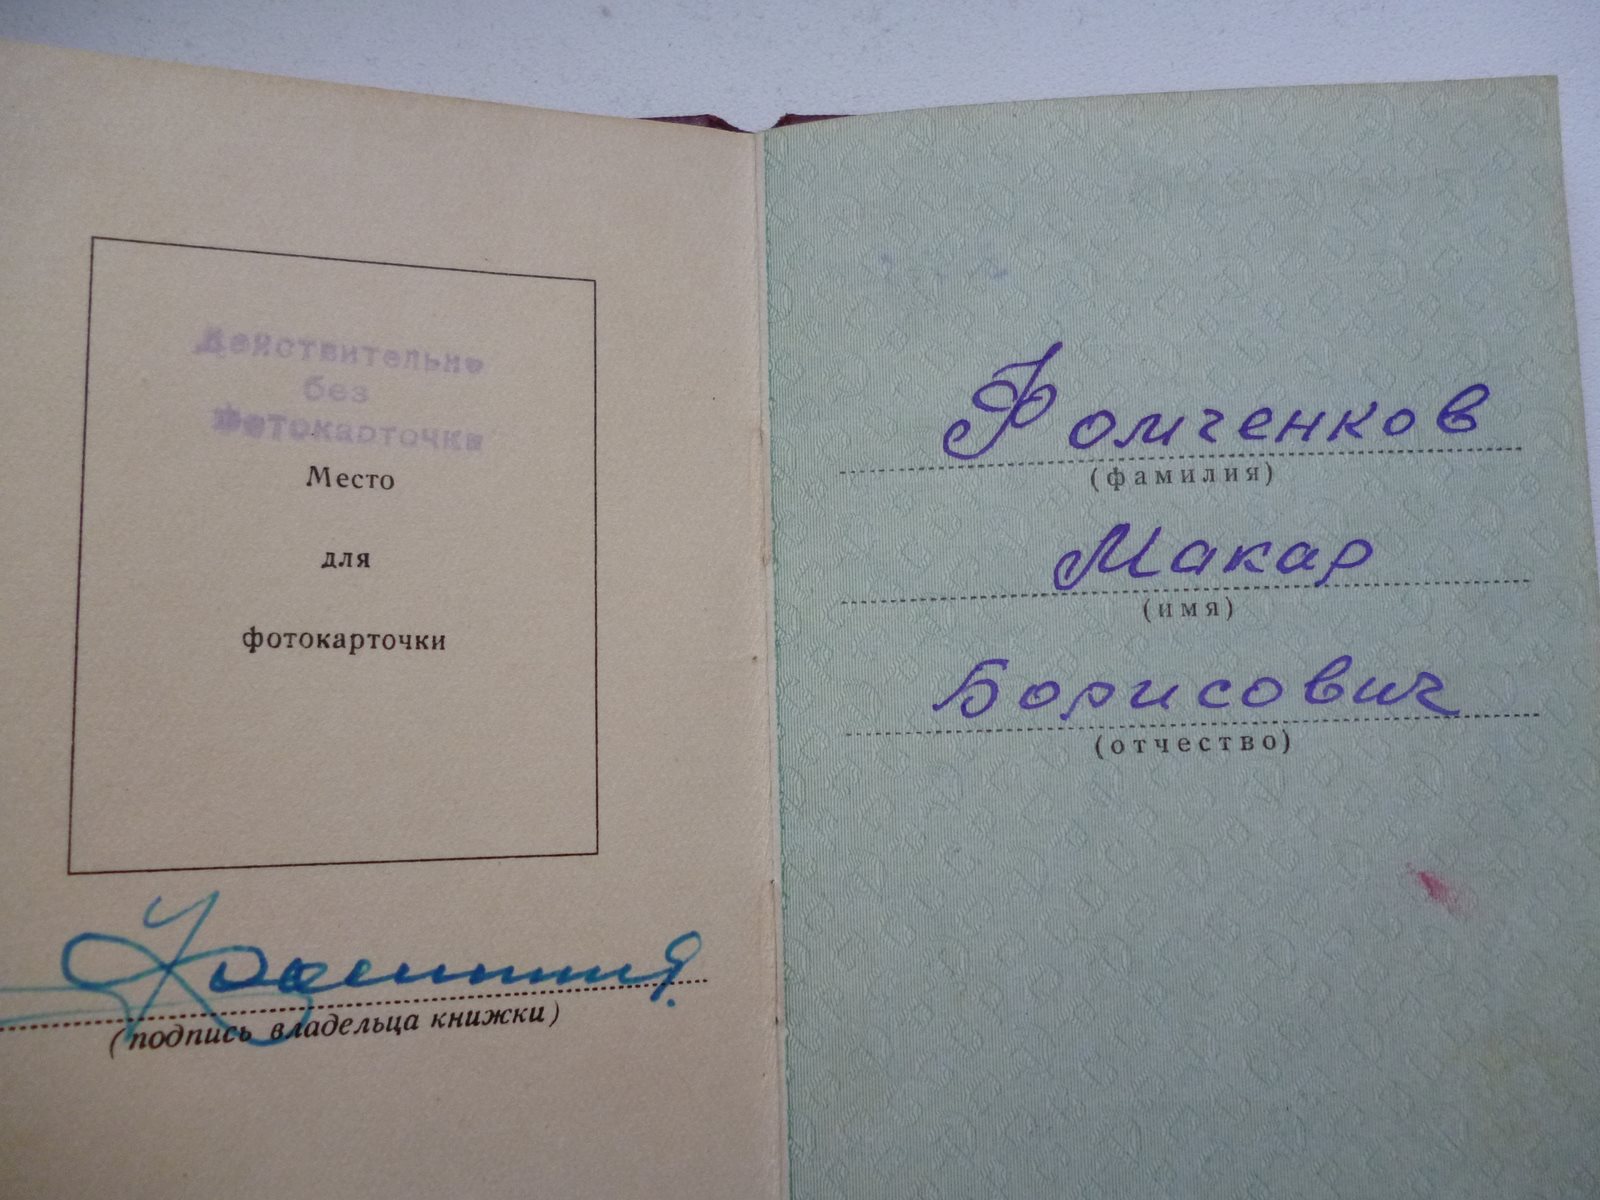 Действительно
без
Фотокарточки
Место
для
фотокарточки
(подпись владельца книжки)
Фомченков
(фамилия)
Макар
(имя)
Борисович
(отчество)